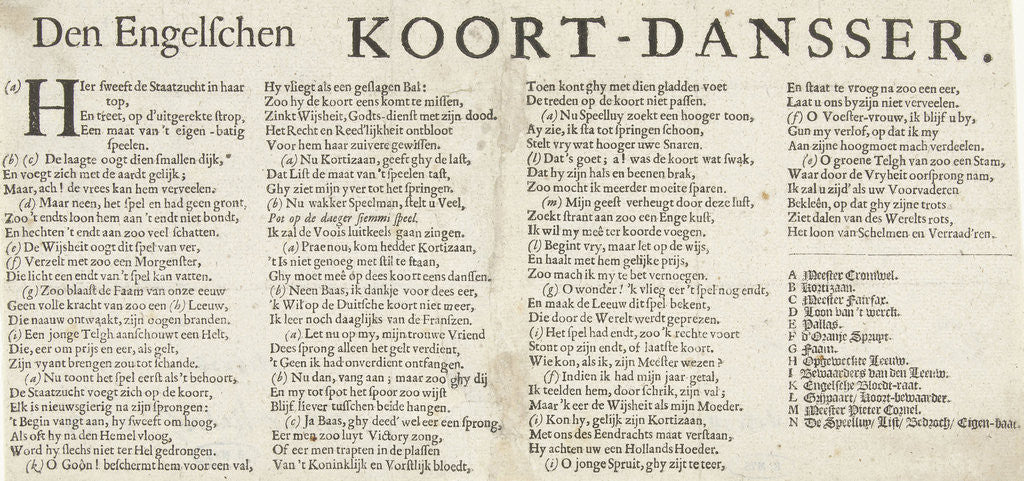 Den Engelſchen KOORT-DANSSER.
(a) HIer ſweeft de Staatzucht in haar
top,
En treet, op d'uitgerekte ſtrop,
Een maat van 't eigen-batig
ſpeelen.
(b) (c) De laagte oogt dien ſmallen dijk,
En voegt zich met de aardt gelijk;
Maar, ach! de vrees kan hem verveelen.
(d) Maar neen, het ſpel en had geen gront,
Zoo 't endts loon hem aan 't endt niet bondt,
En hechten 't endt aan zoo veel ſchatten.
(e) De Wijsheit oogt dit ſpel van ver,
(f) Verzelt met zoo een Morgenſter,
Die licht een endt van 't ſpel kan vatten.
(g) Zoo blaaſt de Faam van onze eeuw
Geen volle kracht van zoo een (h) Leeuw,
Die naauw ontwaakt, zijn oogen branden.
(i) Een jonge Telgh aanſchouwt een Helt,
Die, eer om prijs en eer, als gelt,
Zijn vyant brengen zou tot ſchande.
(a) Nu toont het ſpel eerſt als 't behoort,
De Staatzucht voegt zich op de koort,
Elk is nieuwsgierig na zijn ſprongen:
't Begin vangt aan, hy ſweeft om hoog,
Als oft hy na den Hemel vloog,
Word hy ſlechs niet ter Hel gedrongen.
(k) O Goôn! beſchermt hem voor een val,
Hy vliegt als een geſlagen Bal:
Zoo hy de koort eens komt te miſſen,
Zinkt Wijsheit, Godts-dienſt met zijn dood.
Het Recht en Reed'lijkheit ontbloot
Voor hem haar zuivere gewiſſen.
(a) Nu Kortizaan, geeft ghy de laſt,
Dat Liſt de maat van 't ſpeelen taſt,
Ghy ziet mijn yver tot het ſpringen.
(b) Nu wakker Speelman, ſtelt u Veel,
Pot op de daeger ſiemmi ſpeel.
Ik zal de Voois luitkeels gaan zingen.
(a) Prae nou, kom hedder Kortizaan,
't Is niet genoeg met ſtil te ſtaan,
Ghy moet meê op dees koort eens danſſen.
(b) Neen Baas, ik dankje voor dees eer,
'k Wil op de Duitſche koort niet meer,
Ik leer noch daaglijks van de Franſzen.
(a) Let nu op my, mijn trouwe Vriend
Dees ſprong alleen het gelt verdient,
't Geen ik had onverdient ontfangen.
(b) Nu dan, vang aan; maar zoo ghy dij
En my tot ſpot het ſpoor zoo wijſt
Blijf liever tuſſchen beide hangen.
(c) Ja Baas, ghy deed' wel eer een ſprong,
Eer men zoo luyt Victory zong,
Of eer men trapten in de plaſſen
Van 't Koninklijk en Vorſtlijk bloedt,
Toen kont ghy met dien gladden voet
De treden op de koort niet paſſen.
(a) Nu Speelluy zoekt een hooger toon,
Ay zie, ik ſta tot ſpringen ſchoon,
Stelt vry wat hooger uwe Snaren.
(l) Dat's goet; a! was de koort wat ſwak,
Dat hy zijn hals en beenen brak,
Zoo mocht ik meerder moeite ſparen.
(m) Mijn geeſt verheugt door deze luſt,
Zoekt ſtrant aan zoo een Enge kuſt,
Ik wil my meê ter koorde voegen.
(l) Begint vry, maar let op de wijs,
En haalt met hem gelijke prijs,
Zoo mach ik my te bet vernoegen.
(g) O wonder! 'k vlieg eer 't ſpel nog endt,
En maak de Leeuw dit ſpel bekent,
Die door de Werelt werdt geprezen.
(i) Het ſpel had endt, zoo 'k rechte voort
Stont op zijn endt, of laatſte koort.
Wie kon, als ik, zijn Meeſter wezen?
(f) Indien ik had mijn jaar getal,
Ik teelden hem, door ſchrik, zijn val;
Maar 'k eer de Wijsheit als mijn Moeder.
(i) Kon hy, gelijk zijn Kortizaan,
Met ons des Eendrachts maat verſtaan,
Hy achten uw een Hollands Hoeder.
(i) O jonge Spruit, ghy zijt te teer,
En ſtaat te vroeg na zoo een eer,
Laat u ons byzijn niet verveelen.
(f) O Voeſter-vrouw, ik blijf u by,
Gun my verlof, op dat ik my
Aan zijne hoogmoet mach verdeelen.
(e) O groene Telgh van zoo een Stam,
Waar door de Vryheit oorſprong nam,
Ik zal u zijd' als uw Voorvaderen
Bekleên, op dat ghy zijne trots
Ziet dalen van des Werelts rots,
Het loon van Schelmen en Verraad'ren.
A Meeſter Cromwel.
B Kortizaan.
C Meeſter Fairfax.
D Loon van 't werck.
E Pallas.
F d'Oranje Spruyt.
G Faam.
H Opgeweckte Leeuw.
I Bewaarders van den Leeuw.
K Engelſche Bloedt-raat.
L Gijpaart/ Koort-bewaarder.
M Meeſter Pieter
N De Speelluy/ Liſt/ Bedroch/ Eigen-baat.